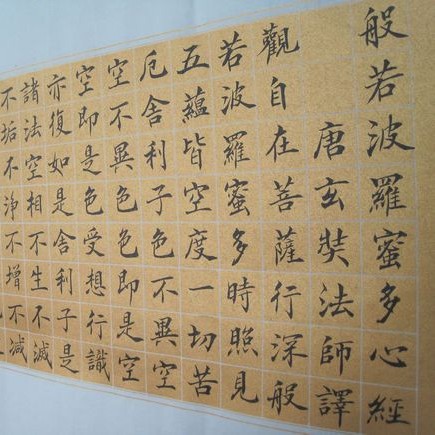 般若波羅蜜多心經
唐玄奘法師譯
觀自在菩薩行深般
若波羅蜜多時照見
五蘊皆空度一切苦
厄舍利子色不異空
空不異色色即是空
空即是色受想行識
亦復如是舍利子是
諸法空相不生不滅
不垢不淨不增不減